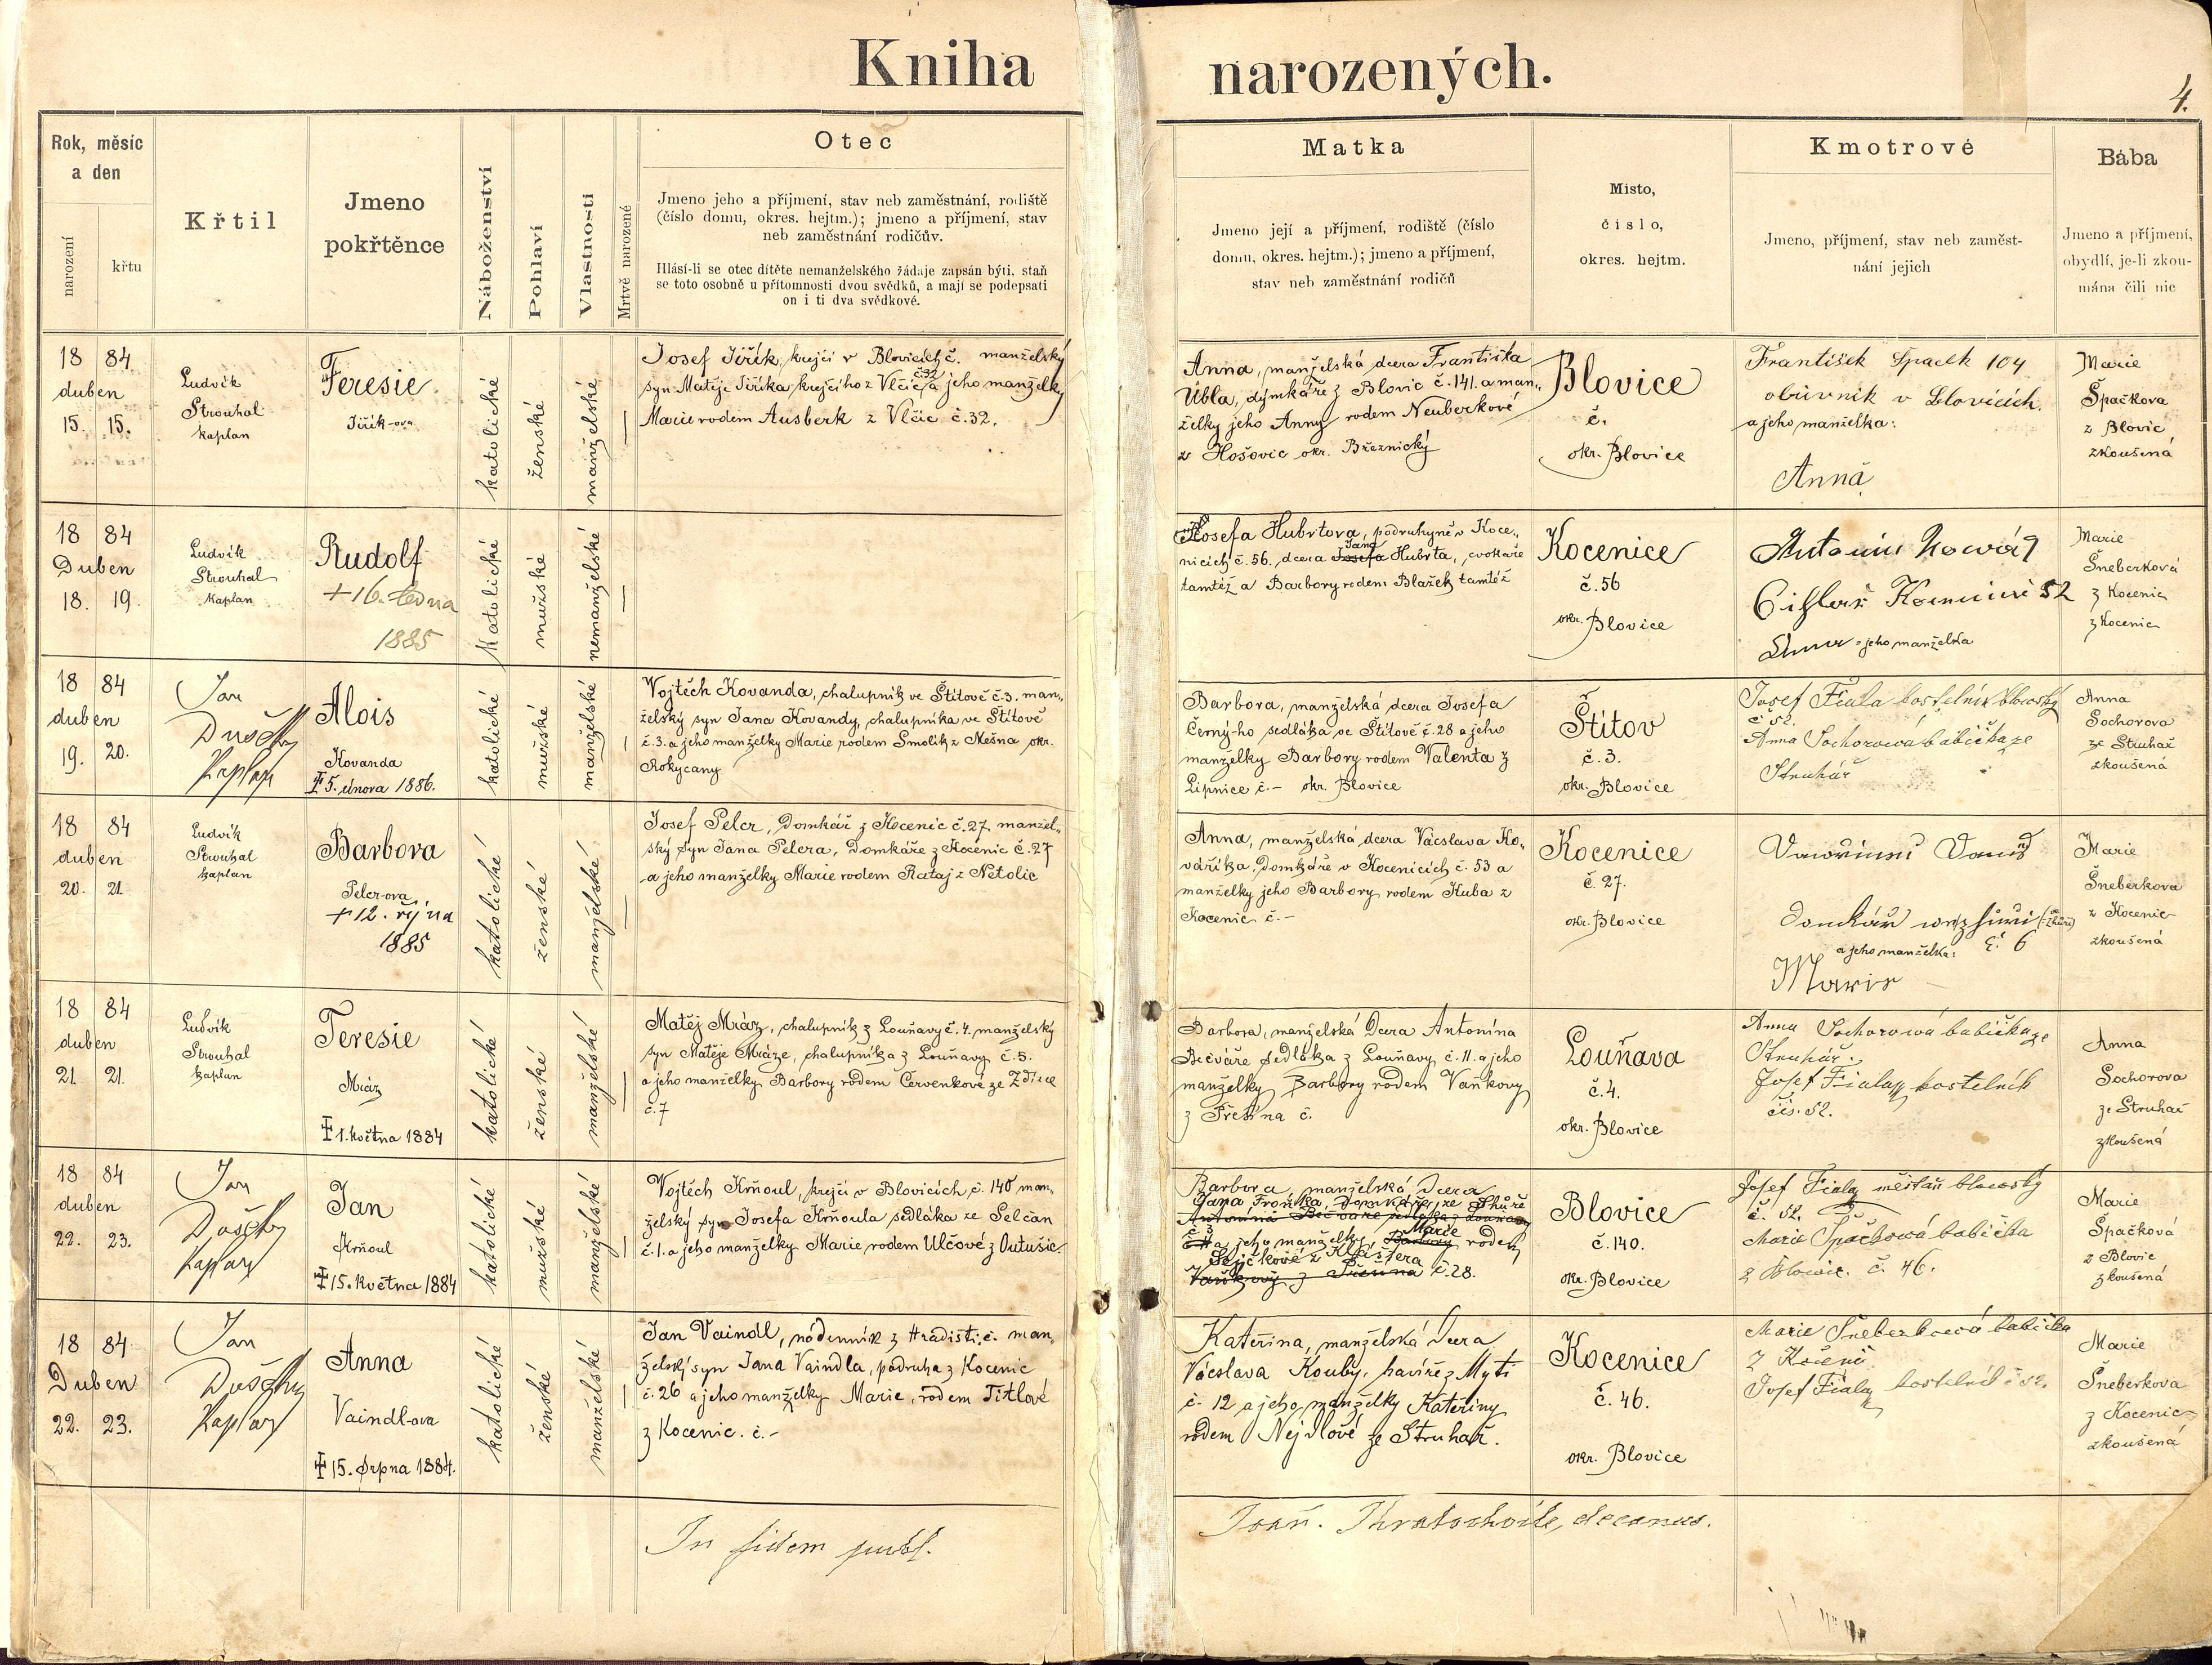 Kniha narozených.
4.
Rok, měsíc
a den
narození
křtu
Křtil
Jmeno
pokřtěnce
Náboženství
Pohlaví
Vlastnosti
Mrtvě narozené
Otec
Jmeno jeho a příjmení, stav neb zaměstnání, rodiště
(číslo domu, okres. hejtm.); jmeno a příjmení, stav
neb zaměstnání rodičův.
Hlásí-li se otec dítěte nemanželského žádaje zapsán býti, staň
se toto osobně u přítomnosti dvou svědků, a mají se podepsati
on i ti dva svědkové.
Matka
Jmeno její a příjmení, rodiště (číslo
domu, okres. hejtm.); jmeno a příjmení,
stav neb zaměstnání rodičů
Místo,
číslo,
okres. hejtm.
Kmotrové
Jmeno, příjmení, stav neb zaměst-
nání jejich
Bába
Jmeno a příjmení,
obydlí, je-li zkou-
mána čili nic
18 84
duben
15. 15.
Ludvík
Strouhal
kaplan
Teresie
Jiřík-ova
katolické
ženské
manželské
Josef Jiřík, krejčí v Blovicích č. manželský
syn Matěje Jiříka krejčího z Vlčic č.32 a jeho manželky
Marie rodem Ausberk z Vlčic č.32.
Anna, manželská dcera Františka
Úbla, dýmkáře z Blovic č.141. a man-
želky jeho Anny rodem Neuberkové
z Hošovic okr. Březnický
Blovice
č.
okr. Blovice
František Špaček 104
obuvník v Blovicích.
a jeho manželka:
Anna
Marie
Špačkova
z Blovic
zkoušená
18 84
Duben
18. 19.
Ludvík
Strouhal
Kaplan
Rudolf
+ 16. ledna
1885
Katolické
mužské
nemanželské
Josefa Hubrtova, podruhyně v Koce-
nicích č.56. dcera Jana Hubrta, cvokaře
tamtéž a Barbory rodem Blažek tamtéž
Kocenice
č.56
okr. Blovice
Antonin Kowář
Kocenici 52
Anna jeho manželka
Marie
Šneberková
z Kocenic
z Kocenic
18 84
duben
19. 20.
Jan
Duschek
Kaplan
Alois
Kovanda
‡ 5. února 1886.
katolické
mužské
manželské
Vojtěch Kovanda, chalupník ve Štítově č.3. man-
želský syn Jana Kovandy, chalupníka ve Štítově
č.3. a jeho manželky Marie rodem Smolík z Mešna okr.
Rokycany
Barbora, manželská dcera Josefa
Černý-ho sedláka ve Štítově č.28 a jeho
manželky Barbory rodem Valenta z
Lipnice č.- okr. Blovice
Štítov
č.3.
okr. Blovice
Josef Fiala kostelník blovský
č 52.
Anna Sochorová babička ze
Struhář
Anna
Sochorova
ze Struhař
zkoušená
18 84
duben
20. 21.
Ludvík
Strouhal
kaplan
Barbora
Pelcr-ova
+ 12. října
1885
katolické
ženské
manželské
Josef Pelcr, Domkář z Kocenic č.27. manžel-
ský syn Jana Pelcra, Domkáře z Kocenic č.27
a jeho manželky Marie rodem Rataj z Netolic
Anna, manželská dcera Václava Ko-
vaříka. Domkáře v Kocenicích č.53 a
manželky jeho Barbory rodem Kuba z
Kocenic č.-
Kocenice
č.27.
okr. Blovice
domkář
a jeho manželka: č. 6
Marie
Marie
Šneberkova
z Kocenic
zkoušená
18 84
duben
21. 21.
Ludvík
Strouhal
kaplan
Teresie
Mráz
‡ 1. května 1884
katolické
ženské
manželské
Matěj Mráz, chalupník z Louňavy č.4. manželský
syn Matěje Mráze, chalupníka z Louňavy č.5.
a jeho manželky Barbory rodem Červenkové ze Zdírce
č.7
Barbora, manželská Dcera Antonína
Bečváře sedláka z Louňavy č.11. a jeho
manželky Barbory rodem Vaňkovy
z Přešína č.
Louňava
č.4.
okr. Blovice
Anna Sochorová babička ze
Struhář.
Josef Fiala kostelník
čís. 52.
Anna
Sochorova
ze Struhař
zkoušená
18 84
duben
22. 23.
Jan
Duschek
Kaplan
Jan
Krňoul
‡ 15. května 1884
katolické
mužské
manželské
Vojtěch Krňoul, krejčí v Blovicích č. 140 man-
želský syn Josefa Krňoula sedláka ze Selčan
č.1. a jeho manželky Marie rodem Ulčové z Outušic.
Barbora, manželská Dcera
Jana Froňka, Domkáře, ze Zhůře
Antonína Bečváře sedláka z Louňavy
č 3 a jeho manželky, Marie rodem
Sejčkové z Kláštera
Vaňkový z Přešína č.28.
Blovice
č.140.
okr. Blovice
Josef Fiala měšťan blovský
č. 52.
Marie Špačková babička
z Blovic. č. 46.
Marie
Špačková
z Blovic
zkoušená
18 84
Duben
22. 23.
Jan
Duschek
Kaplan
Anna
Vaindl-ova
‡ 15. srpna 1884.
katolické
ženské
manželské
Jan Vaindl, nádenník z Hradiště č. man-
želský syn Jana Vaindla, podruha z Kocenic
č.26 a jeho manželky Marie, rodem Titlové
z Kocenic. č.-
Kateřina, manželská Dcera
Václava Kouby, havíře z Mýti
č. 12 a jeho manželky Kateřiny
rodem Nejdlové ze Struhař.
Kocenice
č. 46.
okr. Blovice
Marie Šneberková babička
z Kocenic
Josef Fiala kostelník č 52.
Marie
Šneberkova
z Kocenic
zkoušená
In fidem publ.
Joan. Khratochvíle, decanus.